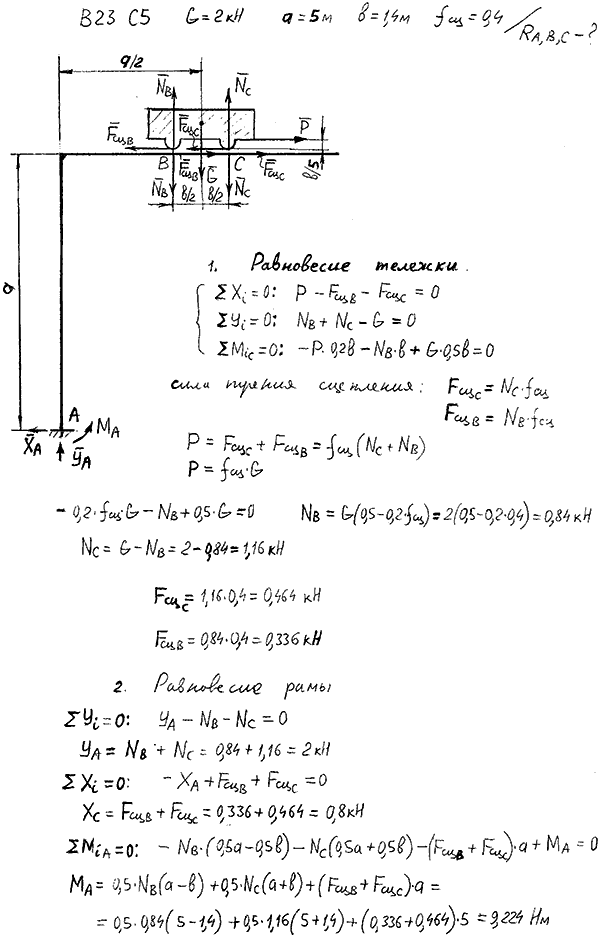 B23 C5 G=2кН a=5м в=1,4м fсц=0,4 / RA,B,C-?
a/2
N̄B N̄C
F̄сцB F̄сцC P̄
B F̄сцB Ḡ C F̄сцC в/5
N̄B в/2 в/2 N̄C
a
1. Равновесие тележки.
ΣXi=0: P-FсцB-FсцC=0
ΣYi=0: NB+NC-G=0
ΣMiC=0: -P·0,2в-NB·в+G·0,5в=0
сила трения сцепления: FсцC=NC·fсц
FсцB=NB·fсц
A MA
X̄A ȲA
P=FсцC+FсцB=fсц(NC+NB)
P=fсц·G
-0,2·fсц·G-NB+0,5·G=0 NB=G(0,5-0,2·fсц)=2(0,5-0,2·0,4)=0,84кН
NC=G-NB=2-0,84=1,16кН
FсцC=1,16·0,4=0,464 кН
FсцB=0,84·0,4=0,336кН
2. Равновесие рамы
ΣYi=0: YA-NB-NC=0
YA=NB+NC=0,84+1,16=2кН
ΣXi=0: -XA+FсцB+FсцC=0
XC=FсцB+FсцC=0,336+0,464=0,8кН
ΣMiA=0: -NB·(0,5a-0,5в)-NC(0,5a+0,5в)-(FсцB+FсцC)·a+MA=0
MA=0,5·NB(a-в)+0,5·NC(a+в)+(FсцB+FсцC)·a=
=0,5·0,84(5-1,4)+0,5·1,16(5+1,4)+(0,336+0,464)·5=9,224 Нм